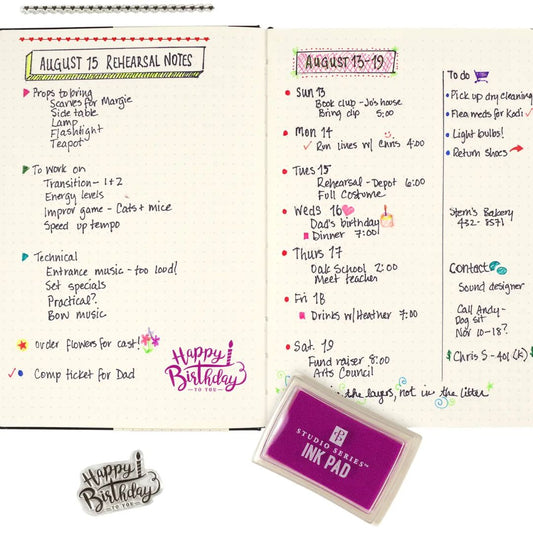 AUGUST 15 REHEARSAL NOTES
Props to bring
Scarves for Margie
Side table
Lamp
Flashlight
Teapot
To work on
Transition - 1+2
Energy levels
Improv game - Cats + mice
Speed up tempo
Technical
Entrance music - too loud!
Set specials
Practical?
Bow music
Order flowers for cast!
Comp ticket for Dad
Happy
Birthday
TO YOU
AUGUST 13-19
Sun 13
Book club - Jo's house
Bring dip 5:00
Mon 14
Run lines w/ Chris 4:00
Tues 15
Rehearsal - Depot 6:00
Full Costume
Weds 16
Dad's birthday
Dinner 7:00
Thurs 17
Oak School 2:00
Meet teacher
Fri 18
Drinks w/ Heather 7:00
Sat. 19
Fund raiser 8:00
Arts Council
in the layers, not in the litter
To do
Pick up dry cleaning
Flea meds for Kodi
Light bulbs!
Return shoes
Stern's Bakery
432-8571
Contact
Sound designer
Call Andy-
Dog sit
Nov 10-18?
Chris S - 401 (k)
STUDIO SERIES™
INK PAD
Happy
Birthday
TO YOU